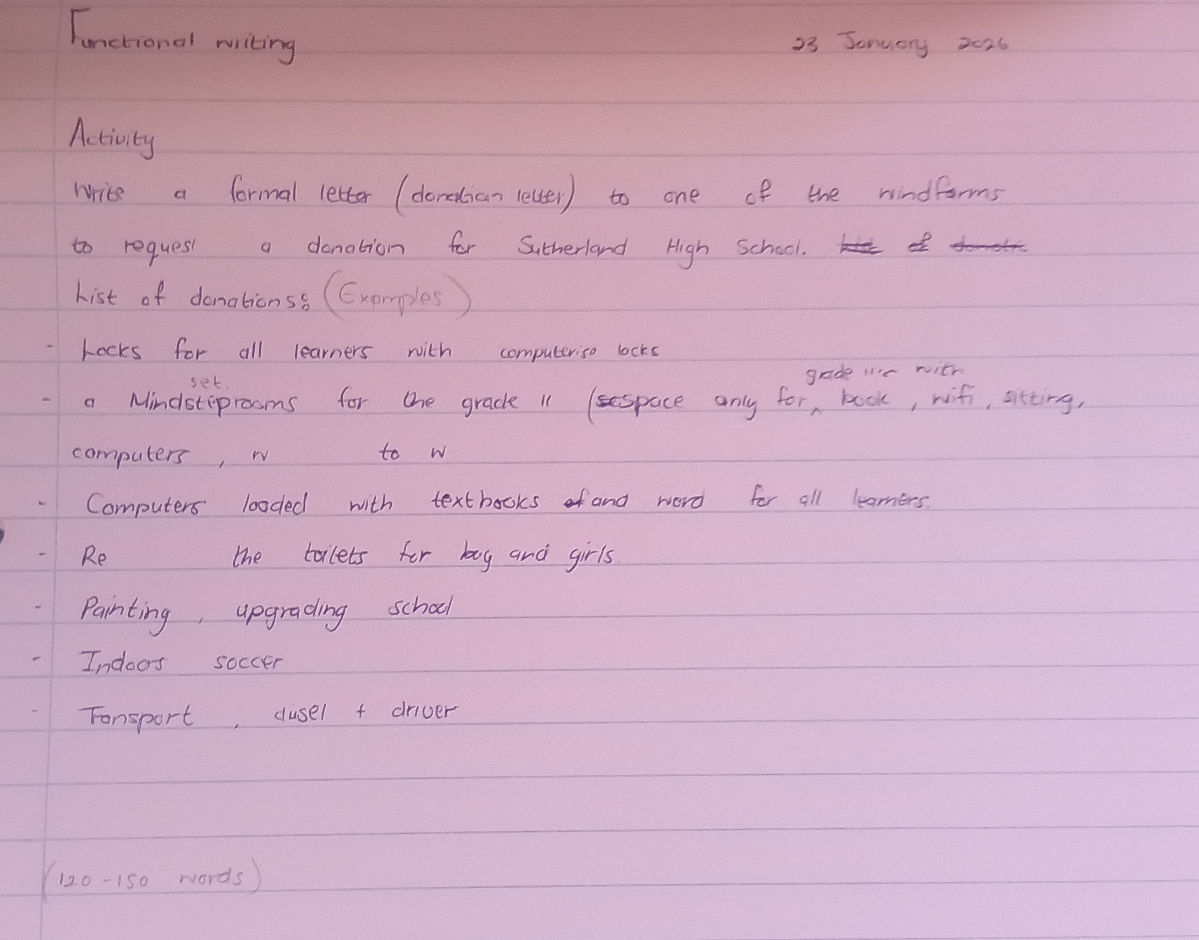 Functional writing 23 January 2026
Activity
Write a formal letter (donation letter) to one of the windfarms
to request a donation for Sutherland High School. of
List of donations: (Examples)
- Locks for all learners with computeriso locks
set. grade 11's with
- a Mindsteprooms for the grade 11 (space only for book, wifi, sitting,
computers, to w
- Computers loaded with textbooks and word for all learners.
- Re the toilets for boy and girls.
- Painting, upgrading school
- Indoors soccer
- Transport, diesel + driver
(120-150 words)